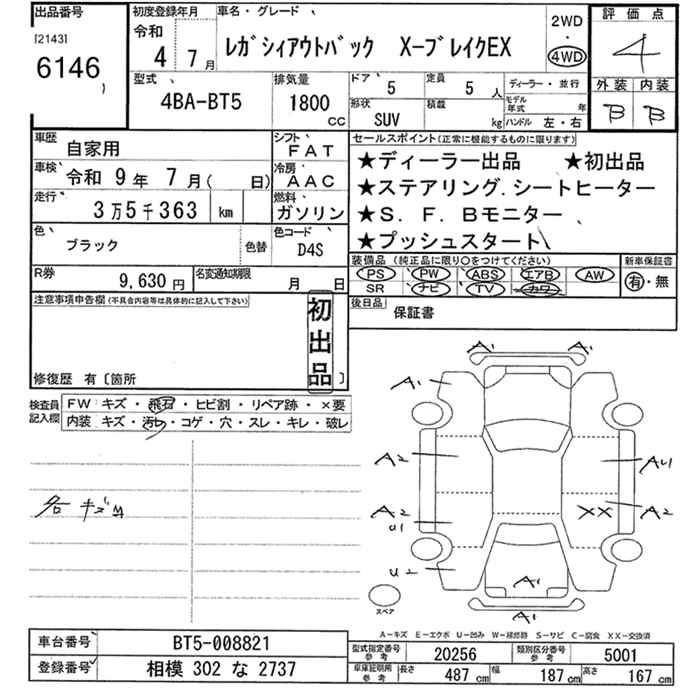 出品番号
[2143]
6146
初度登録年月
令和
4年 7月
車名・グレード
レガシィアウトバック X-ブレイクEX
2WD
・
4WD
評価点
4
外装 内装
B B
型式
4BA-BT5
排気量
1800
CC
ドア
5
定員
5人
ディーラー・並行
形状
SUV
積載
kg
モデル年式
年
ハンドル 左・右
車歴
自家用
シフト
FAT
車検
令和 9年 7月( 日)
冷房
AAC
走行
3万5千363 km
燃料
ガソリン
色
ブラック
色替
色コード
D4S
R券
9,630円
名変通知期限
月 日
セールスポイント(正常に機能するものに限ります)
★ディーラー出品 ★初出品
★ステアリング.シートヒーター
★S.F.Bモニター
★プッシュスタート
装備品 (純正品に限り○をつけてください)
PS PW ABS エアB AW
SR ナビ TV カワ
新車保証書
有・無
後日品
保証書
注意事項申告欄(不具合内容等は具体的に記入して下さい)
初出品
修復歴 有〔箇所 〕
検査員記入欄
FW キズ・飛石・ヒビ割・リペア跡・×要
内装 キズ・汚レ・コゲ・穴・スレ・キレ・破レ
各キズ
A1 A1
A1
A2 AU1
A2 XX A2
U1
U2
A1
A1
スペア
A-キズ E-エクボ U-凹み W-補修跡 S-サビ C-腐食 XX-交換済
車台番号
BT5-008821
登録番号
相模 302 な 2737
型式指定番号
参考
20256
類別区分番号
参考
5001
車庫証明用
参考
長さ
487 cm
幅
187 cm
高さ
167 cm